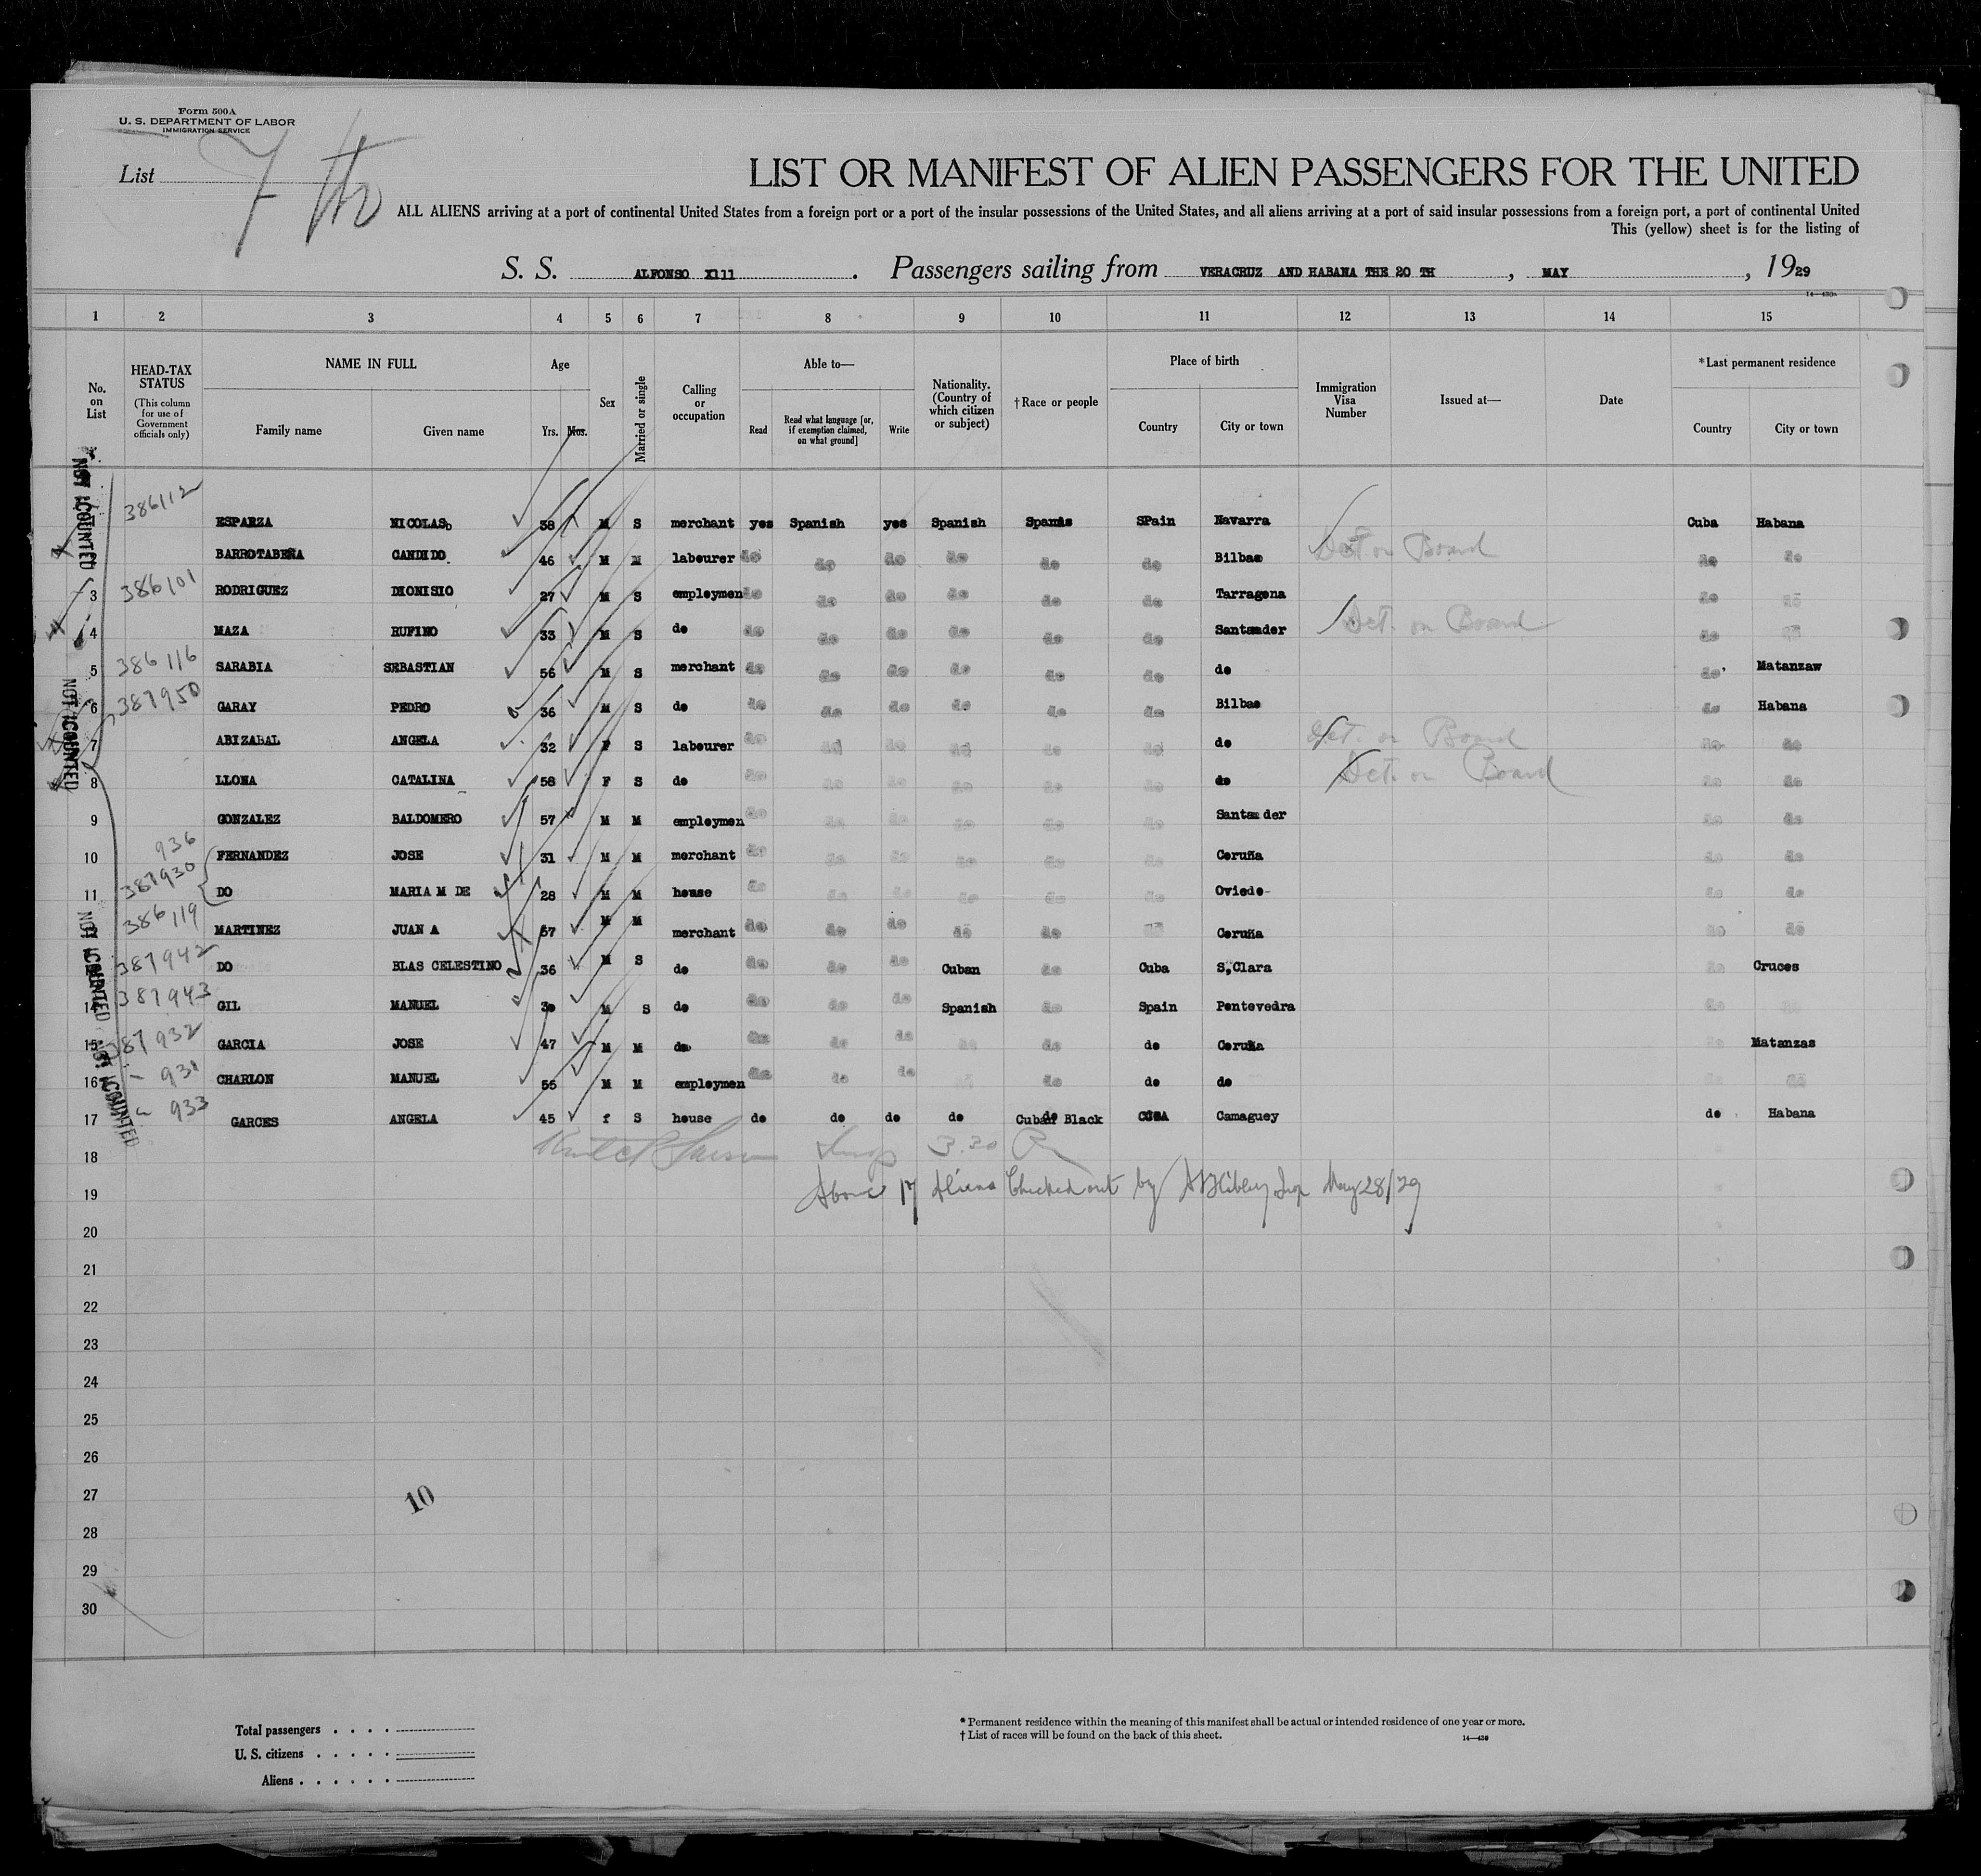 Form 500A
U. S. DEPARTMENT OF LABOR
IMMIGRATION SERVICE
List 7 th
LIST OR MANIFEST OF ALIEN PASSENGERS FOR THE UNITED
ALL ALIENS arriving at a port of continental United States from a foreign port or a port of the insular possessions of the United States, and all aliens arriving at a port of said insular possessions from a foreign port, a port of continental United
This (yellow) sheet is for the listing of
S. S. ALFONSO X111 . Passengers sailing from VERACRUZ AND HABANA THE 20 TH , MAY , 1929
14—430A
1 2 3 4 5 6 7 8 9 10 11 12 13 14 15
No. on List
HEAD-TAX STATUS (This column for use of Government officials only)
NAME IN FULL Family name Given name
Age Yrs. Mos.
Sex
Married or single
Calling or occupation
Able to— Read Read what language [or, if exemption claimed, on what ground] Write
Nationality. (Country of which citizen or subject)
†Race or people
Place of birth Country City or town
Immigration Visa Number
Issued at—
Date
*Last permanent residence Country City or town
NOT COUNTED
NOT COUNTED
NOT COUNTED
NOT COUNTED
386112 ESPARZA NICOLAS 38 M S merchant yes Spanish yes Spanish SPain Navarra Cuba Habana
BARROTABEÑA CANDIDO. 46 M M labourer do do do do do do Bilbao Det on Board do do
3 386101 RODRIGUEZ DIONISIO 27 M S employmen do do do do do do Tarragona do do
4 MAZA RUFINO 33 M S do do do do do do do Santander Det. on Board do do
5 386116 SARABIA SEBASTIAN 56 M S merchant do do do do do do do do Matanzaw
6 387950 GARAY PEDRO 36 M S do do do do do do do Bilbao do Habana
7 ABIZABAL ANGELA 32 F S labourer do do do do do do do Det. on Board do do
8 LLONA CATALINA 58 F S do do do do do do do do Det. on Board do do
9 GONZALEZ BALDOMERO 57 M M employmen do do do do do do Santander do do
10 936 FERNANDEZ JOSE 31 M M merchant do do do do do do Coruña do do
11 387930 DO MARIA M DE 28 M M house do do do do do do Oviedo- do do
386119 MARTINEZ JUAN A 67 M M merchant do do do do do do Coruña do do
387942 DO BLAS CELESTINO 36 M S do do do do Cuban do Cuba S,Clara do Cruces
14 387943 GIL MANUEL 30 M S do do do do Spanish do Spain Pontevedra do do
15 387932 GARCIA JOSE 47 M M do do do do do do do Coruña do Matanzas
16 - 931 CHARLON MANUEL 55 M M employmen do do do do do do do do do
17 933 GARCES ANGELA 45 f S house do do do do Cuban Black CUBA Camaguey do Habana
18 3.30
19 Above 17 Aliens Checked out by May 28/29
20
21
22
23
24
25
26
27
28
29
30
10
Total passengers . . . .
U. S. citizens . . . . .
Aliens . . . . . .
* Permanent residence within the meaning of this manifest shall be actual or intended residence of one year or more.
† List of races will be found on the back of this sheet.
14—430